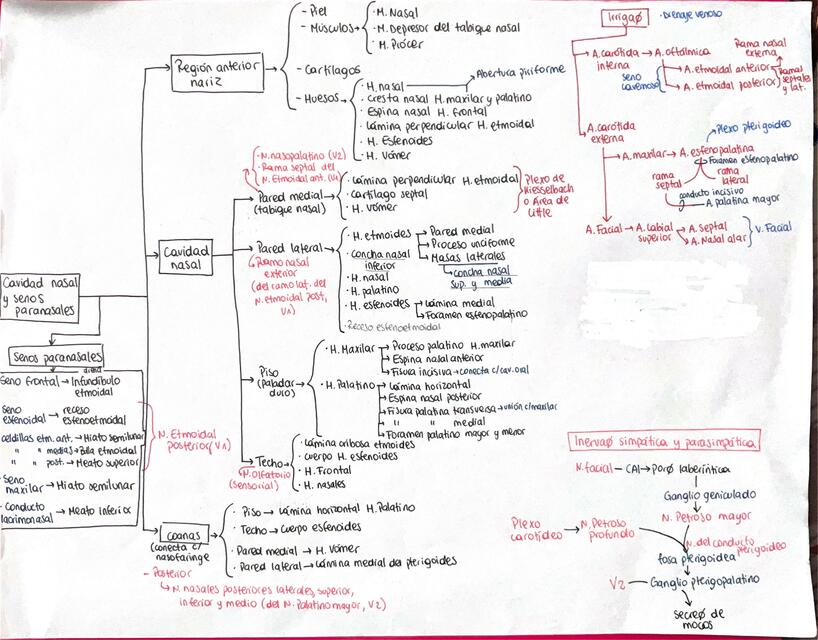 Cavidad nasal
y senos
paranasales
Región anterior
nariz
- Piel
- Músculos
· M. Nasal
· M. Depresor del tabique nasal
· M. Prócer
- Cartílagos
- Huesos
· H. nasal
Abertura piriforme
· cresta nasal H. maxilar y palatino
· Espina nasal H. frontal
· Lámina perpendicular H. etmoidal
· H. Esfenoides
· H. Vómer
Cavidad
nasal
· N. nasopalatino (V2)
· Rama septal del
N. Etmoidal ant. (V1)
Pared medial
(tabique nasal)
· Lámina perpendicular H. etmoidal
· Cartílago septal
· H. vómer
Plexo de
Kiesselbach
o Área de
Little
Pared lateral
Ramo nasal
exterior
(del ramo lat. del
N. etmoidal Post,
V1)
· H. etmoides
Pared medial
Proceso unciforme
Masas laterales
concha nasal
sup. y media
· concha nasal
inferior
· H. nasal
· H. palatino
· H. esfenoides
Lámina medial
Foramen esfenopalatino
· Receso esfenoetmoidal
Piso
(Paladar
duro)
· H. Maxilar
Proceso palatino H. maxilar
Espina nasal anterior
Fisura incisiva → conecta c/ cav. oral
· H. Palatino
Lámina horizontal
Espina nasal posterior
Fisura palatina transversa → unión c/ maxilar
" " medial
Foramen palatino mayor y menor
Techo
N. Olfatorio
(sensorial)
· Lámina cribosa etmoides
· cuerpo H. esfenoides
· H. Frontal
· H. nasales
Coanas
(conecta c/
nasofaringe
- Posterior
N. nasales posteriores laterales, superior,
inferior y medio (del N. Palatino mayor, V2)
· Piso → Lámina horizontal H. Palatino
· Techo → Cuerpo esfenoides
· Pared medial → H. Vómer
· Pared lateral → Lámina medial del pterigoides
Senos paranasales
drena
Seno frontal → Infundíbulo
etmoidal
seno
esfenoidal → receso
esfenoetmoidal
celdillas etm. ant. → Hiato semilunar
" " medias → Bula etmoidal
" " post. → Meato superior
· Seno
maxilar → Hiato semilunar
· Conducto
lacrimonasal → Meato inferior
N. Etmoidal
Posterior (V1)
Irrigaø
· Drenaje venoso
A. carótida
interna
A. oftálmica
seno
cavernoso
Rama nasal
externa
A. etmoidal anterior
A. etmoidal posterior
Ramas
septales
y lat.
A. carótida
externa
Plexo pterigoideo
A. maxilar → A. esfenopalatina
Foramen esfenopalatino
rama
septal
rama
lateral
conducto incisivo
A. palatina mayor
A. Facial → A. Labial
superior
A. Septal
A. Nasal alar
V. Facial
Inervaø simpática y parasimpática
N. facial — CAI → Porø laberíntica
Ganglio geniculado
N. Petroso mayor
Plexo
carotídeo
N. Petroso
profundo
N. del conducto
pterigoideo
fosa pterigoidea
V2 — Ganglio pterigopalatino
secreø de
mocos